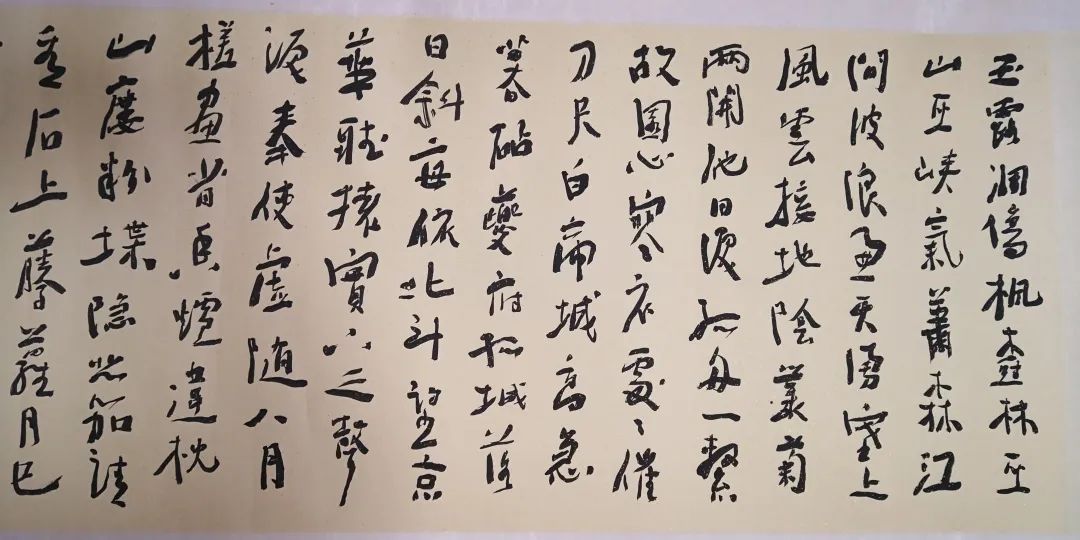 玉露凋傷楓樹林巫
山巫峽氣蕭森江
間波浪兼天湧塞上
風雲接地陰叢菊
兩開他日淚孤舟一繫
故園心寒衣處〻催
刀尺白帝城高急
暮砧夔府孤城落
日斜每依北斗望京
華聽猿實下三聲
淚奉使虛隨八月
槎畫省香爐違枕
山廔粉堞隐悲笳請
看石上藤蘿月已